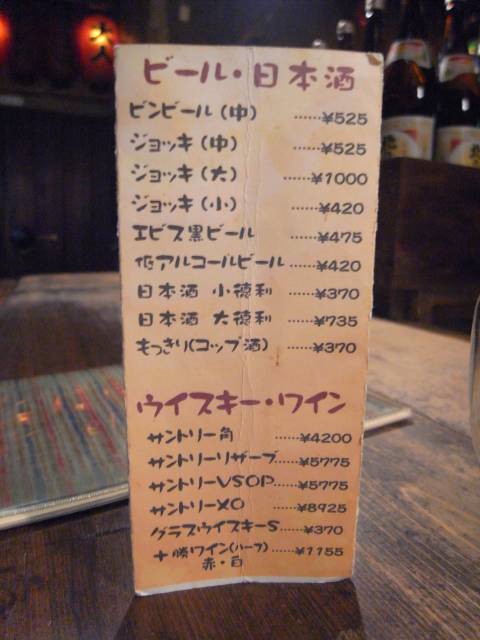 大人
ビール・日本酒
ビンビール(中) ……¥525
ジョッキ(中) ……¥525
ジョッキ(大) ……¥1000
ジョッキ(小) ……¥420
エビス黒ビール ……¥475
低アルコールビール ……¥420
日本酒 小徳利 ……¥370
日本酒 大徳利 ……¥735
もっきり(コップ酒) ……¥370
ウイスキー・ワイン
サントリー角 ……¥4200
サントリーリザーブ……¥5775
サントリーVSOP……¥5775
サントリーXO ……¥8925
グラスウイスキーS……¥370
十勝ワイン(ハーフ)……¥1155
赤・白